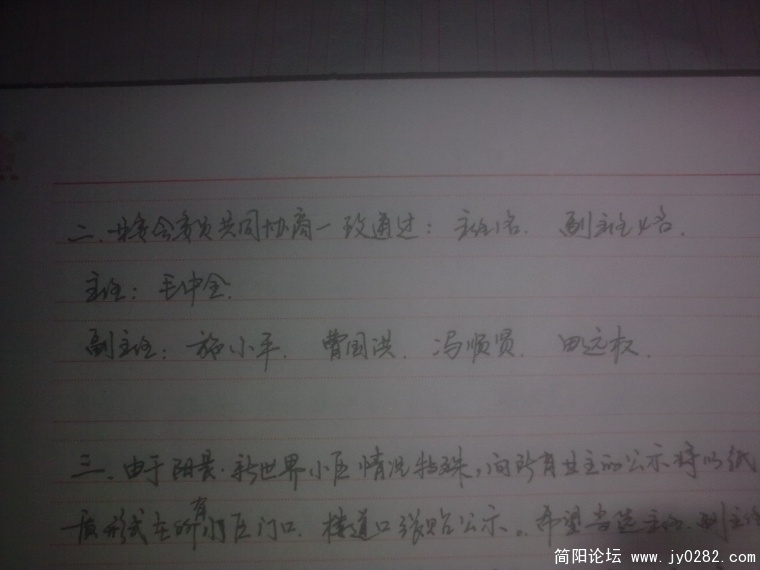 二、业委会委员共同协商一致通过：主任1名、副主任4名.
主任：毛中全.
副主任：施小平. 曹国洪. 冯顺贤. 田远权.
三、由于阳景·新世界小区情况特殊，向所有业主的公示将以纸
质形式在所有门区门口、楼道口张贴公示。希望当选主任、副主任
简阳论坛 www.jy0282.com